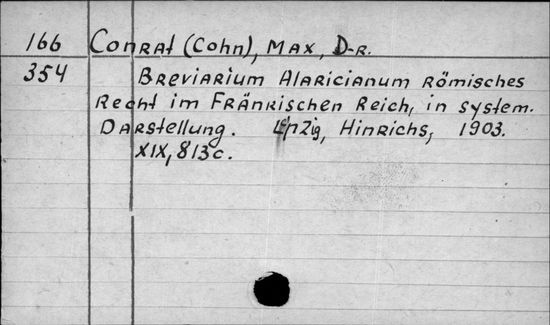 166 Conrat (Cohn), Max, D-r.
354 Breviarium Alaricianum Römisches
Recht im Fränkischen Reich, in system.
Darstellung. Lpzig, Hinrichs, 1903.
XIX, 813c.